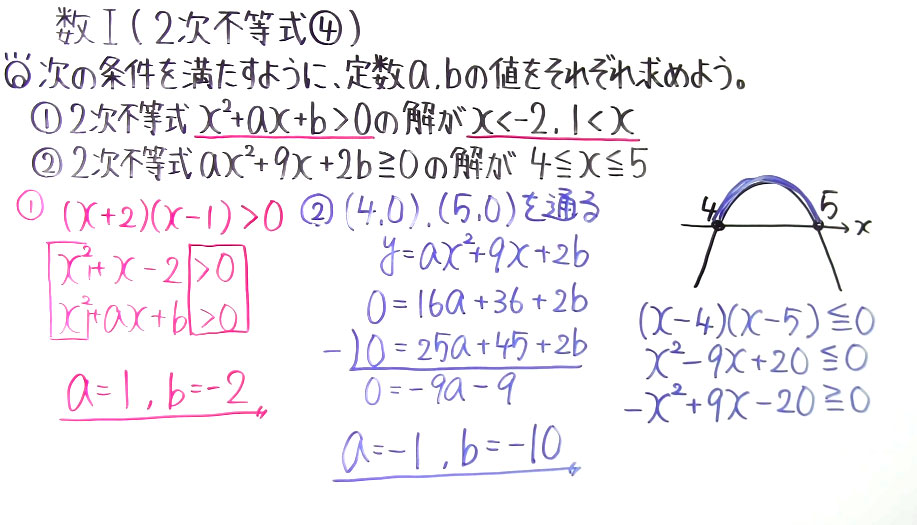 数I(2次不等式④)
◎次の条件を満たすように、定数a,bの値をそれぞれ求めよう。
①2次不等式 x²+ax+b>0の解が x<-2, 1<x
②2次不等式 ax²+9x+2b≧0の解が 4≦x≦5
① (x+2)(x-1)>0
x²+x-2>0
x²+ax+b>0
a=1, b=-2
② (4,0),(5,0)を通る
y=ax²+9x+2b
0=16a+36+2b
-)0=25a+45+2b
0=-9a-9
a=-1, b=-10
4 5 x
(x-4)(x-5)≦0
x²-9x+20≦0
-x²+9x-20≧0